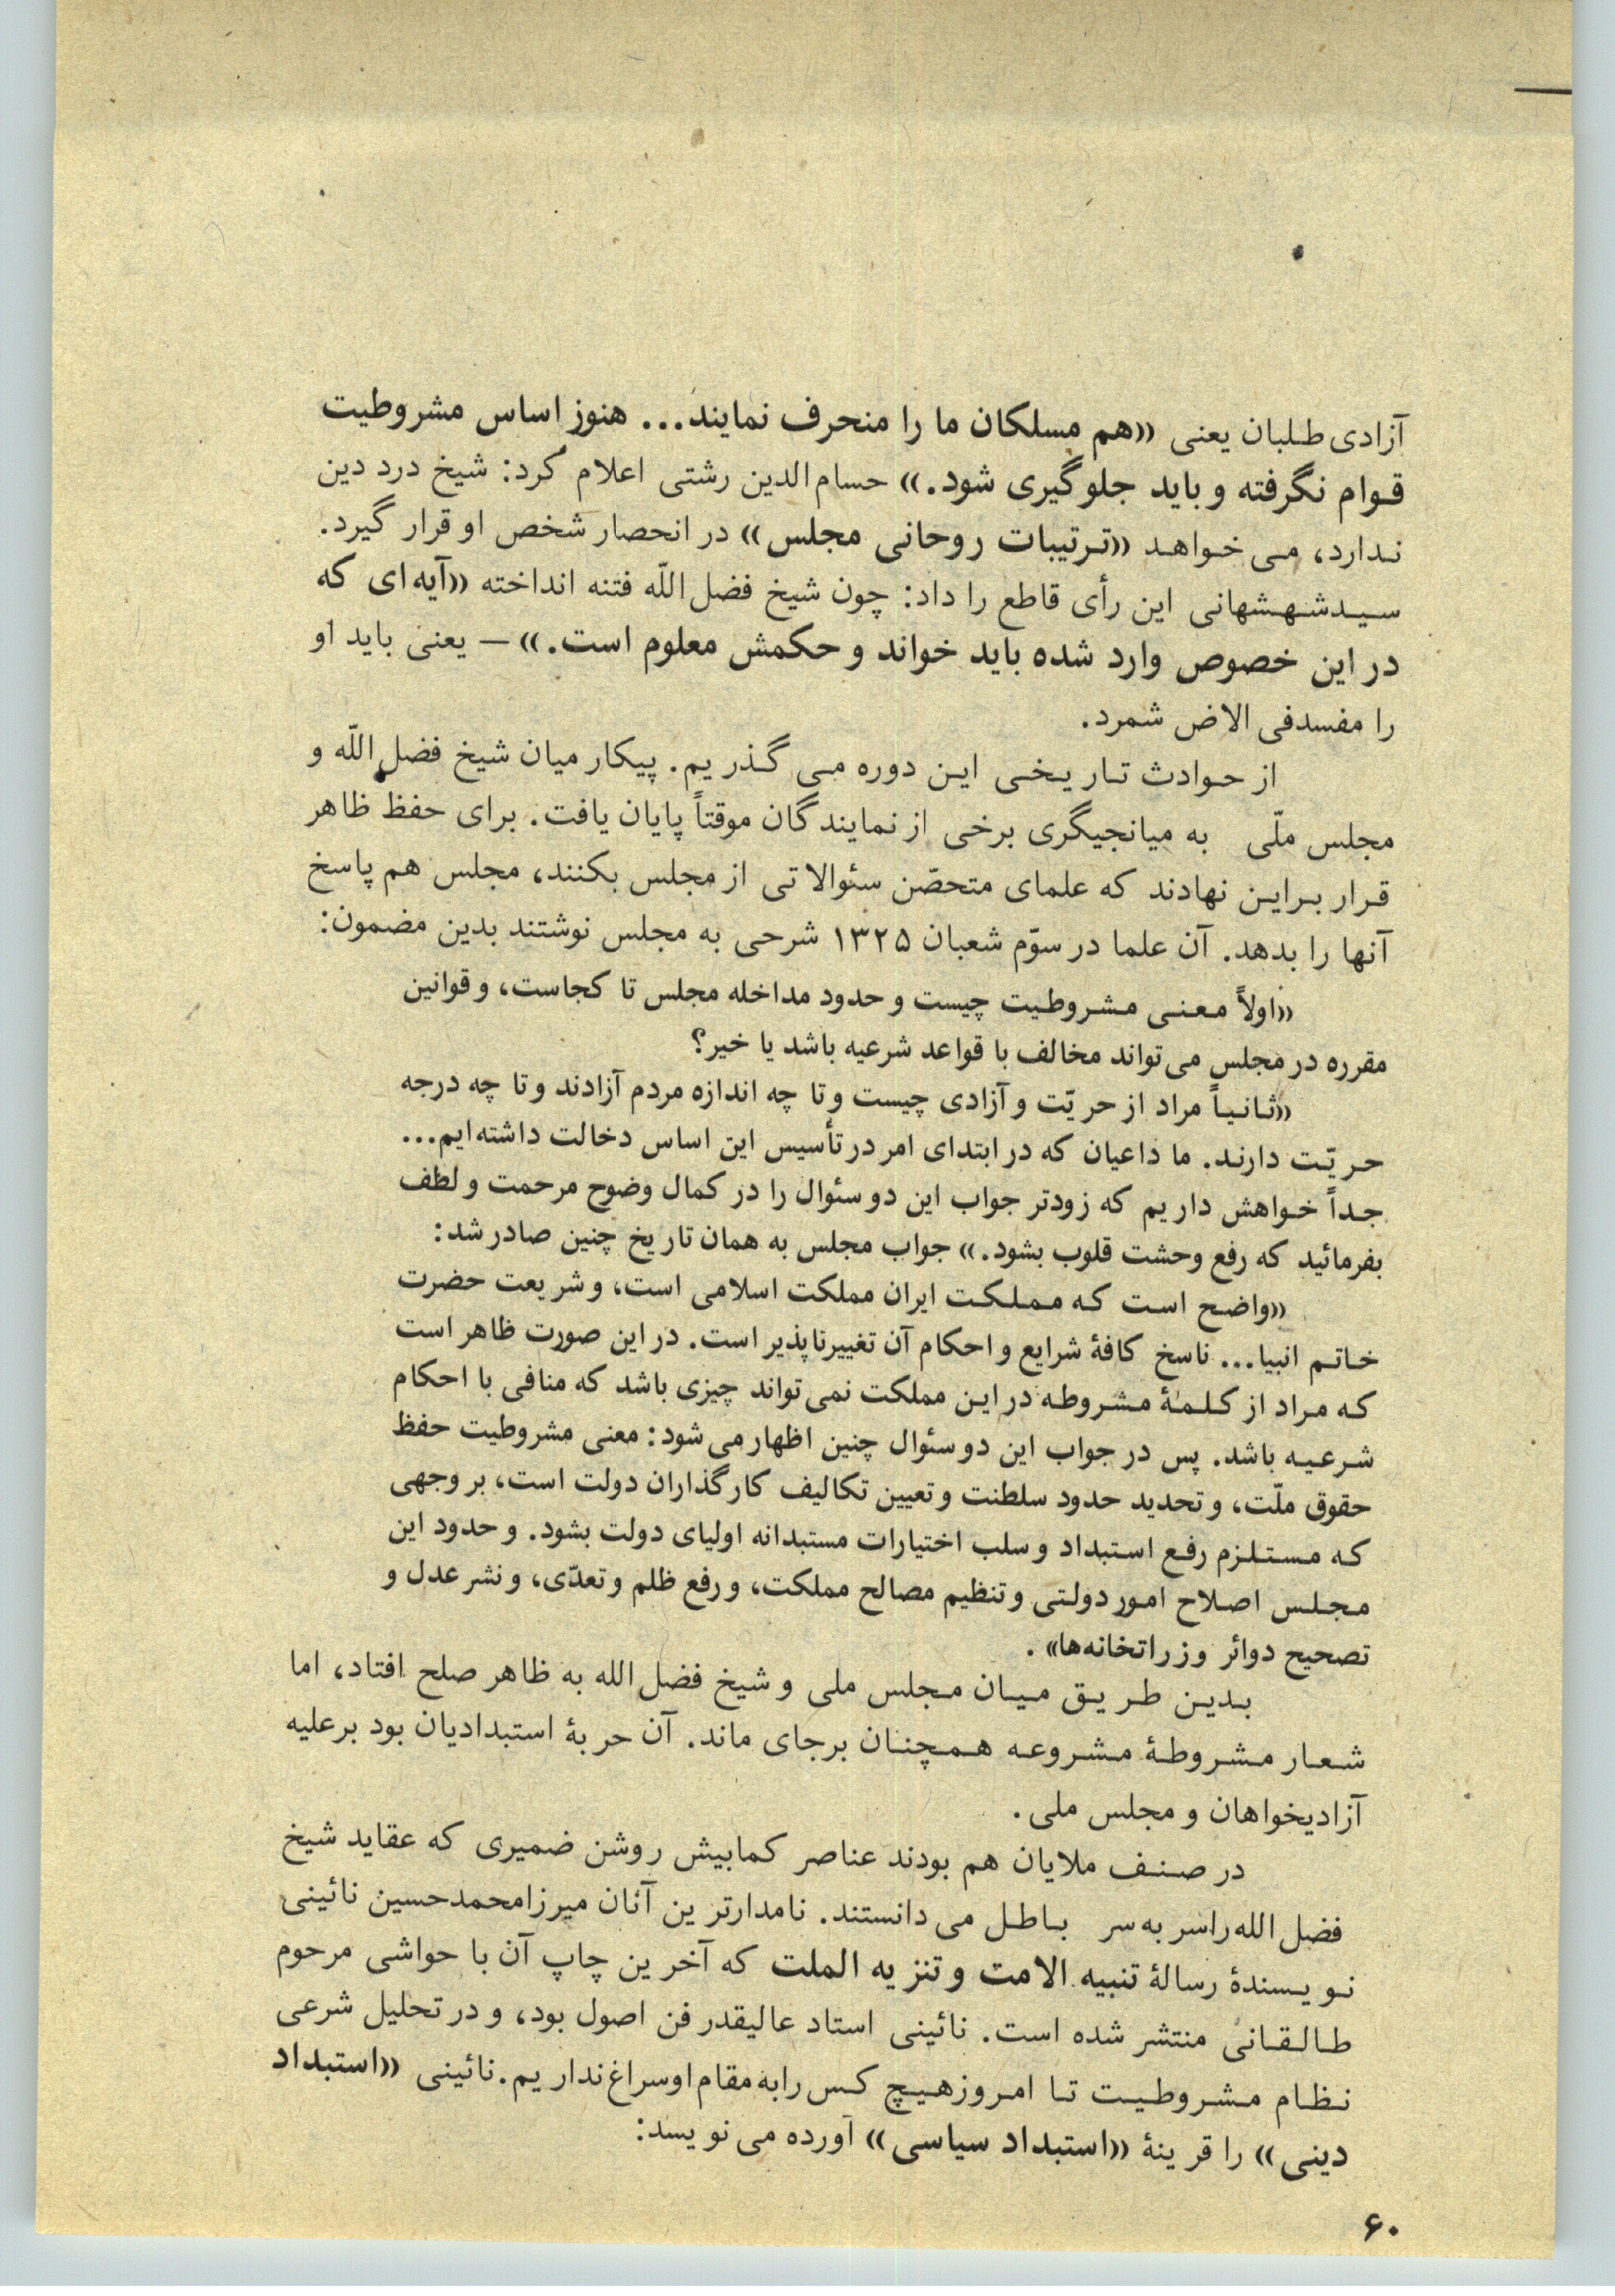 آزادی طلبان یعنی «هم مسلکان ما را منحرف نمایند... هنوز اساس مشروطیت
قوام نگرفته و باید جلوگیری شود.» حسام الدین رشتی اعلام کرد: شیخ درد دین
ندارد، می خواهد «ترتیبات روحانی مجلس» در انحصار شخص او قرار گیرد.
سیدشهشهانی این رأی قاطع را داد: چون شیخ فضل اللّه فتنه انداخته «آیه ای که
در این خصوص وارد شده باید خواند و حکمش معلوم است.» — یعنی باید او
را مفسدفی الاض شمرد.
از حوادث تاریخی این دوره می گذریم. پیکار میان شیخ فضل اللّه و
مجلس ملّی به میانجیگری برخی از نمایندگان موقتاً پایان یافت. برای حفظ ظاهر
قرار براین نهادند که علمای متحصّن سئوالاتی از مجلس بکنند، مجلس هم پاسخ
آنها را بدهد. آن علما در سوّم شعبان ۱۳۲۵ شرحی به مجلس نوشتند بدین مضمون:
«اولاً معنی مشروطیت چیست و حدود مداخله مجلس تا کجاست، و قوانین
مقرره در مجلس می تواند مخالف با قواعد شرعیه باشد یا خیر؟
«ثانیاً مراد از حریّت و آزادی چیست و تا چه اندازه مردم آزادند و تا چه درجه
حریّت دارند. ما داعیان که در ابتدای امر در تأسیس این اساس دخالت داشته ایم...
جداً خواهش داریم که زودتر جواب این دو سئوال را در کمال وضوح مرحمت و لطف
بفرمائید که رفع وحشت قلوب بشود.» جواب مجلس به همان تاریخ چنین صادر شد:
«واضح است که مملکت ایران مملکت اسلامی است، و شریعت حضرت
خاتم انبیا... ناسخ کافهٔ شرایع و احکام آن تغییرناپذیر است. در این صورت ظاهر است
که مراد از کلمهٔ مشروطه در این مملکت نمی تواند چیزی باشد که منافی با احکام
شرعیه باشد. پس در جواب این دو سئوال چنین اظهار می شود: معنی مشروطیت حفظ
حقوق ملّت، و تحدید حدود سلطنت و تعیین تکالیف کارگذاران دولت است، بر وجهی
که مستلزم رفع استبداد و سلب اختیارات مستبدانه اولیای دولت بشود. و حدود این
مجلس اصلاح امور دولتی و تنظیم مصالح مملکت، و رفع ظلم و تعدّی، و نشر عدل و
تصحیح دوائر وزراتخانه ها».
بدین طریق میان مجلس ملی و شیخ فضل الله به ظاهر صلح افتاد، اما
شعار مشروطهٔ مشروعه همچنان برجای ماند. آن حربهٔ استبدادیان بود برعلیه
آزادیخواهان و مجلس ملی.
در صنف ملایان هم بودند عناصر کمابیش روشن ضمیری که عقاید شیخ
فضل الله را سر به سر باطل می دانستند. نامدارترین آنان میرزامحمدحسین نائینی
نویسندهٔ رسالهٔ تنبیه الامت و تنزیه الملت که آخرین چاپ آن با حواشی مرحوم
طالقانی منتشر شده است. نائینی استاد عالیقدر فن اصول بود، و در تحلیل شرعی
نظام مشروطیت تا امروز هیچ کس را به مقام او سراغ نداریم. نائینی «استبداد
دینی» را قرینهٔ «استبداد سیاسی» آورده می نویسد:
۶۰